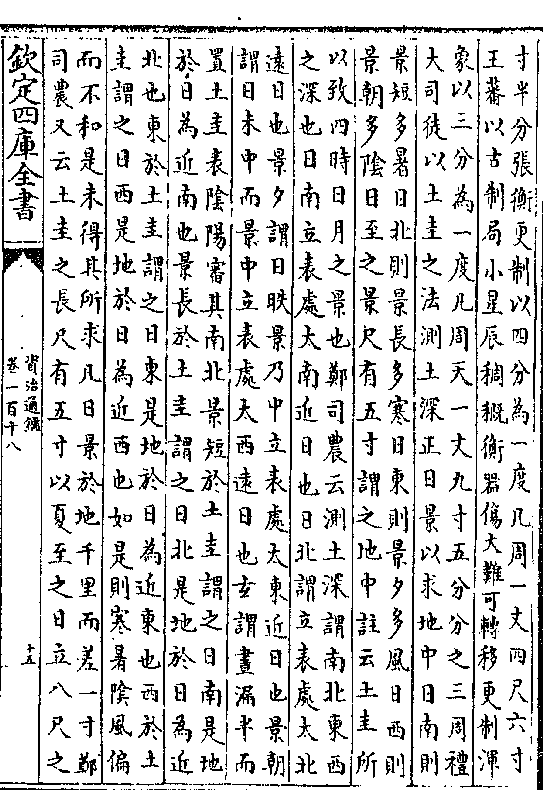 寸半分張衡更制以四分為一度凡周一丈四尺六寸
王蕃以古制局小星辰稠穊衡器傷大難可轉移更制渾
象以三分為一度凡周天一丈九寸五分分之三周禮
大司徒以土圭之法測土深正日景以求地中日南則
景短多暑日北則景長多寒日東則景夕多風日西則
景朝多陰日至之景尺有五寸謂之地中註云土圭所
以致四時日月之景也鄭司農云測土深謂南北東西
之深也日南立表處太南近日也日北謂立表處太北
遠日也景夕謂日昳景乃中立表處太東近日也景朝
謂日未中而景中立表處大西遠日也玄謂晝漏半而
置土圭表陰陽審其南北景短於土圭謂之日南是地
於日為近南也景長於土圭謂之日北是地於日為近
北也東於土圭謂之日東是地於日為近東也西於土
圭謂之日西是地於日為近西也如是則寒暑陰風偏
而不和是未得其所求凡日景於地千里而差一寸鄭
司農又云土圭之長尺有五寸以夏至之日立八尺之
欽定四庫全書
資治通鑑
卷一百十八
十五